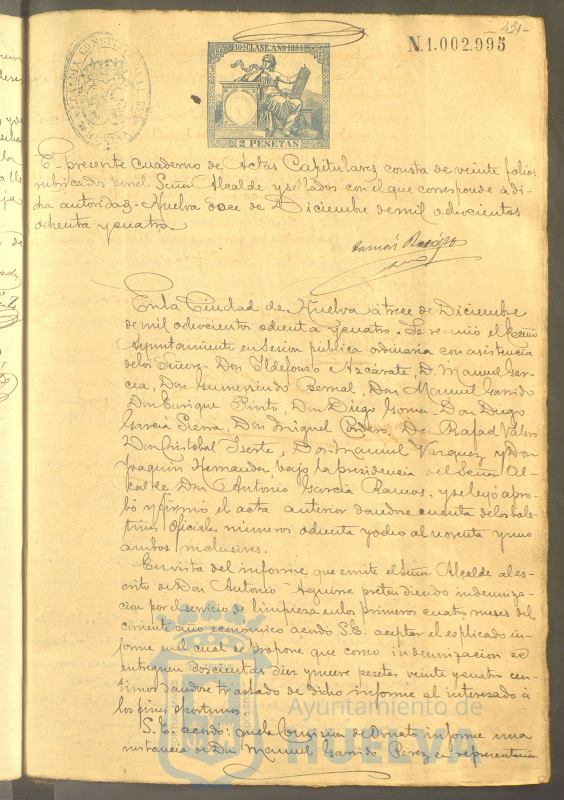 421-
N.1.002.995
10ª CLASE. AÑO 1884
2 PESETAS
El presente cuaderno de Actas Capitulares consta de veinte folios
rubricados por el Señor Alcalde y sellados con el que corresponde á di-
cha autoridad. Huelva doce de Diciembre de mil ochocientos
ochenta y cuatro.
Ramón
En la Ciudad de Huelva á trece de Diciembre
de mil ochocientos ochenta y cuatro. Se reunió el
Ayuntamiento en Sesion pública ordinária con asistencia
de los Señores Don Ildefonso Azcárate, D. Manuel Gar-
cia, Don Gumersindo Bernal, Don Manuel Garrido
Don Enrique Pinto, Don Diego Gomez Don Diego
Garcia Sierra, Don Miguel Cordero, Don Rafael Valero
Don Cristobal Iserte, Don Manuel Vazquez y Don
Joaquin Hernandez, bajo la presidencia del Señor Al-
calde Don Antonio Garcia Ramos, y se leyó apro-
bó y firmó el acta anterior dandose cuenta de los bole-
tines oficiales números ochenta y ocho al noventa y uno
ambos inclusives.
En vista del informe que emite el Señor Alcalde al es-
crito de Don Antonio Aguirre pretendiendo indemniza-
cion por el servicio de limpieza en los primeros cuatro meses del
corriente año economico acordó S.E. aceptar el esplicado in-
forme en el cual se propone que como indemnizacion se
entreguen doscientas diez y nueve pesetas, veinte y cuatro cen-
timos dandose traslado de dicho informe al interesado á
los fines oportunos.
S.E. acordó: que la Comision de Ornato informe una
instancia de Don Manuel Garrido Perez en representacion
Ayuntamiento de
HUELVA